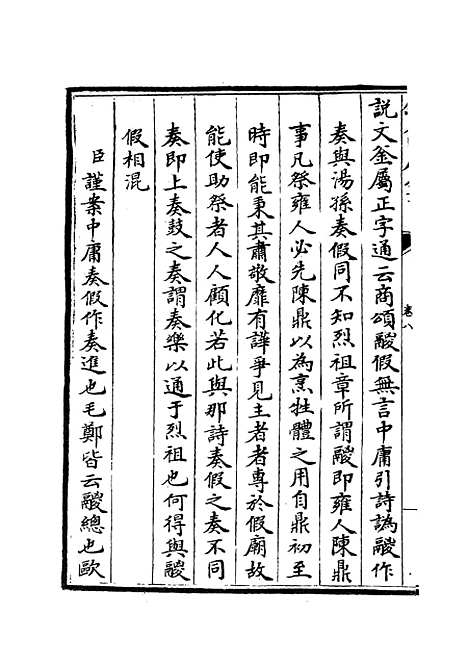 說文釜屬正字通云商頌鬷假無言中庸引詩譌鬷作
奏與湯孫奏假同不知烈祖章所謂鬷即雍人陳鼎
事凡祭雍人必先陳鼎以為烹牲體之用自鼎初至
時即能秉其肅敬靡有譁爭見主者專於假廟故
能使助祭者人人顧化若此與那詩奏假之奏不同
奏即上奏鼓之奏謂奏樂以通于烈祖也何得與鬷
假相混
臣謹案中庸奏假作奏進也毛鄭皆云鬷總也歐
卷八